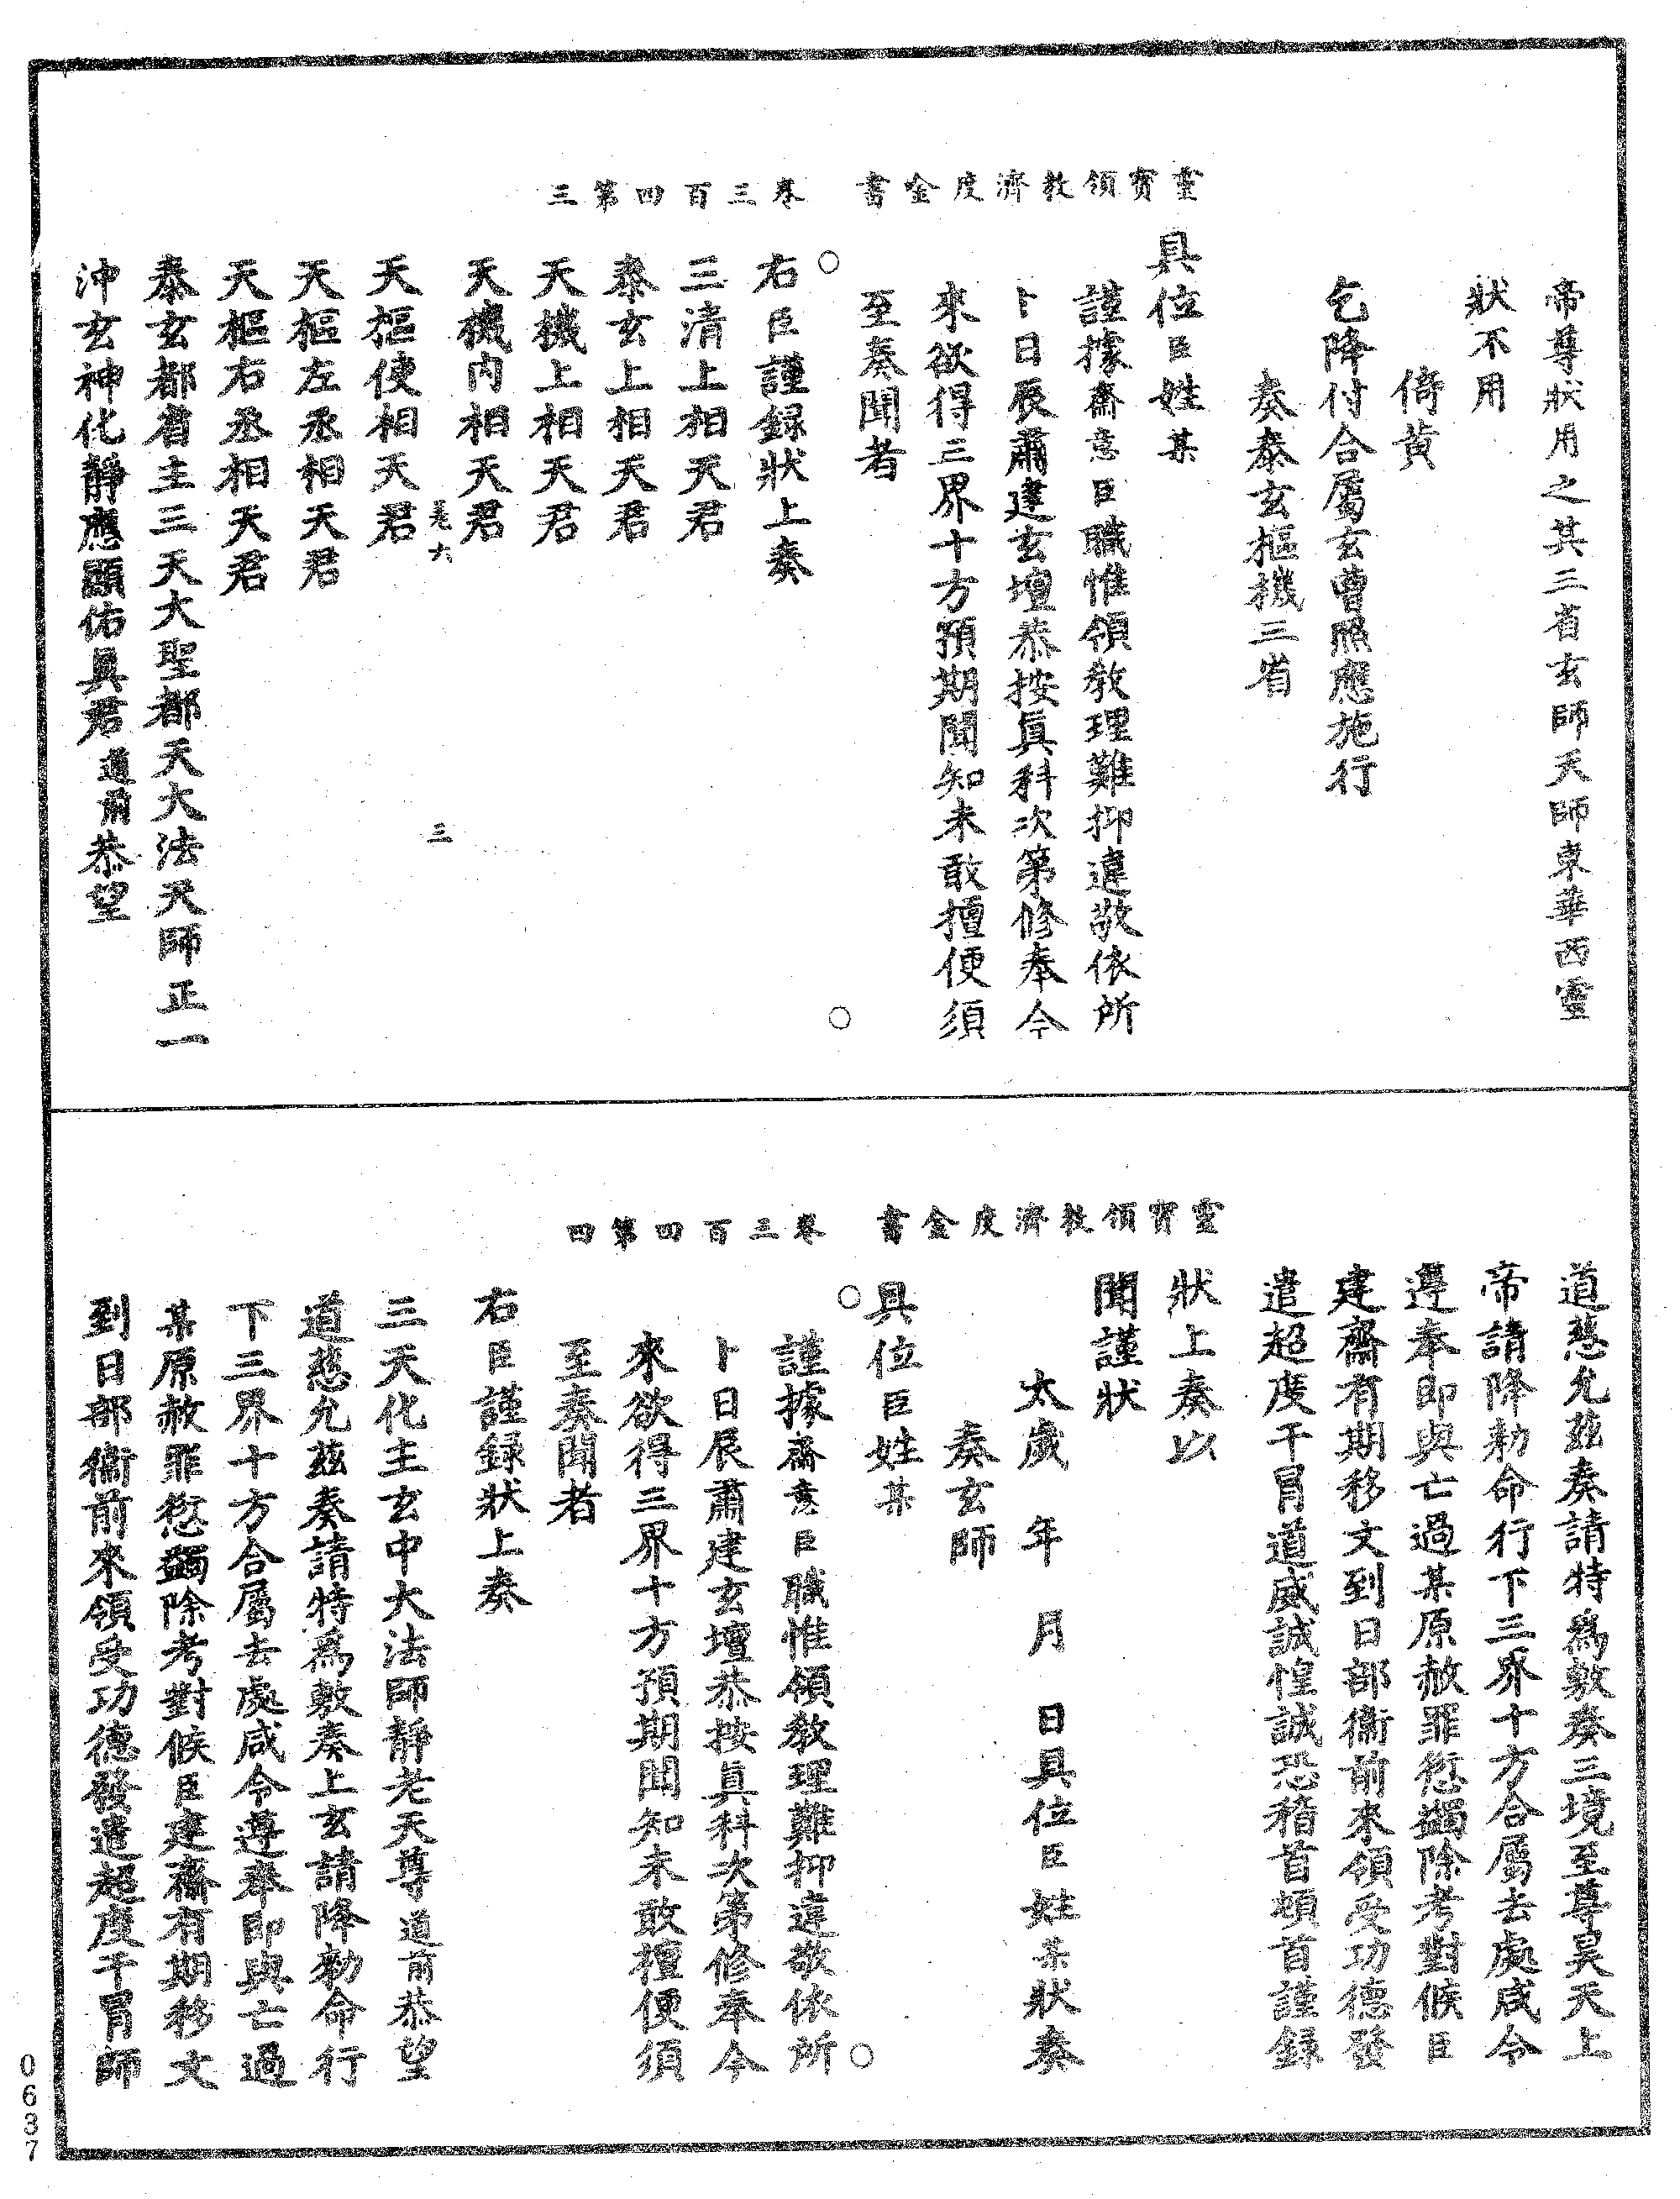 靈寶領教濟度金書　卷三百四第三
帝尊狀用之其三省玄師天師東華西靈
狀不用
倚黃
乞降付合屬玄曹照應施行
奏泰玄樞機三省
具位臣姓某
謹據齋意臣職惟領教理難抑違敬依所
卜日辰肅建玄壇恭按眞科次第修奉今
來欲得三界十方預期聞知未敢擅便須
至奏聞者
右臣謹録狀上奏
三清上相天君
泰玄上相天君
天機上相天君
天機內相天君
三
天樞使相天君
天樞左丞相天君
天樞右丞相天君
泰玄都省主三天大聖都天大法天師正一
沖玄神化靜應顯佑眞君道前恭望
靈寶領教濟度金書　卷三百四第四
道慈允茲奏請特爲敷奏三境至尊昊天上
帝請降勑命行下三界十方合屬去處咸令
遵奉即與亡過某原赦罪愆蠲除考對候臣
建齋有期移文到日部衞前來領受功德發
遣超度干冒道威誠惶誠恐稽首頓首謹録
狀上奏以
聞謹狀
太歲　年　月　日具位臣姓某狀奏
奏玄師
具位臣姓某
謹據齋意臣職惟領教理難抑違敬依所
卜日辰肅建玄壇恭按眞科次第修奉今
來欲得三界十方預期聞知未敢擅便須
至奏聞者
右臣謹録狀上奏
三天化主玄中大法師靜老天尊道前恭望
道慈允茲奏請特爲敷奏上玄請降勑命行
下三界十方合屬去處咸令遵奉即與亡過
某原赦罪愆蠲除考對候臣建齋有期移文
到日部衞前來領受功德發遣超度干冒師
0637